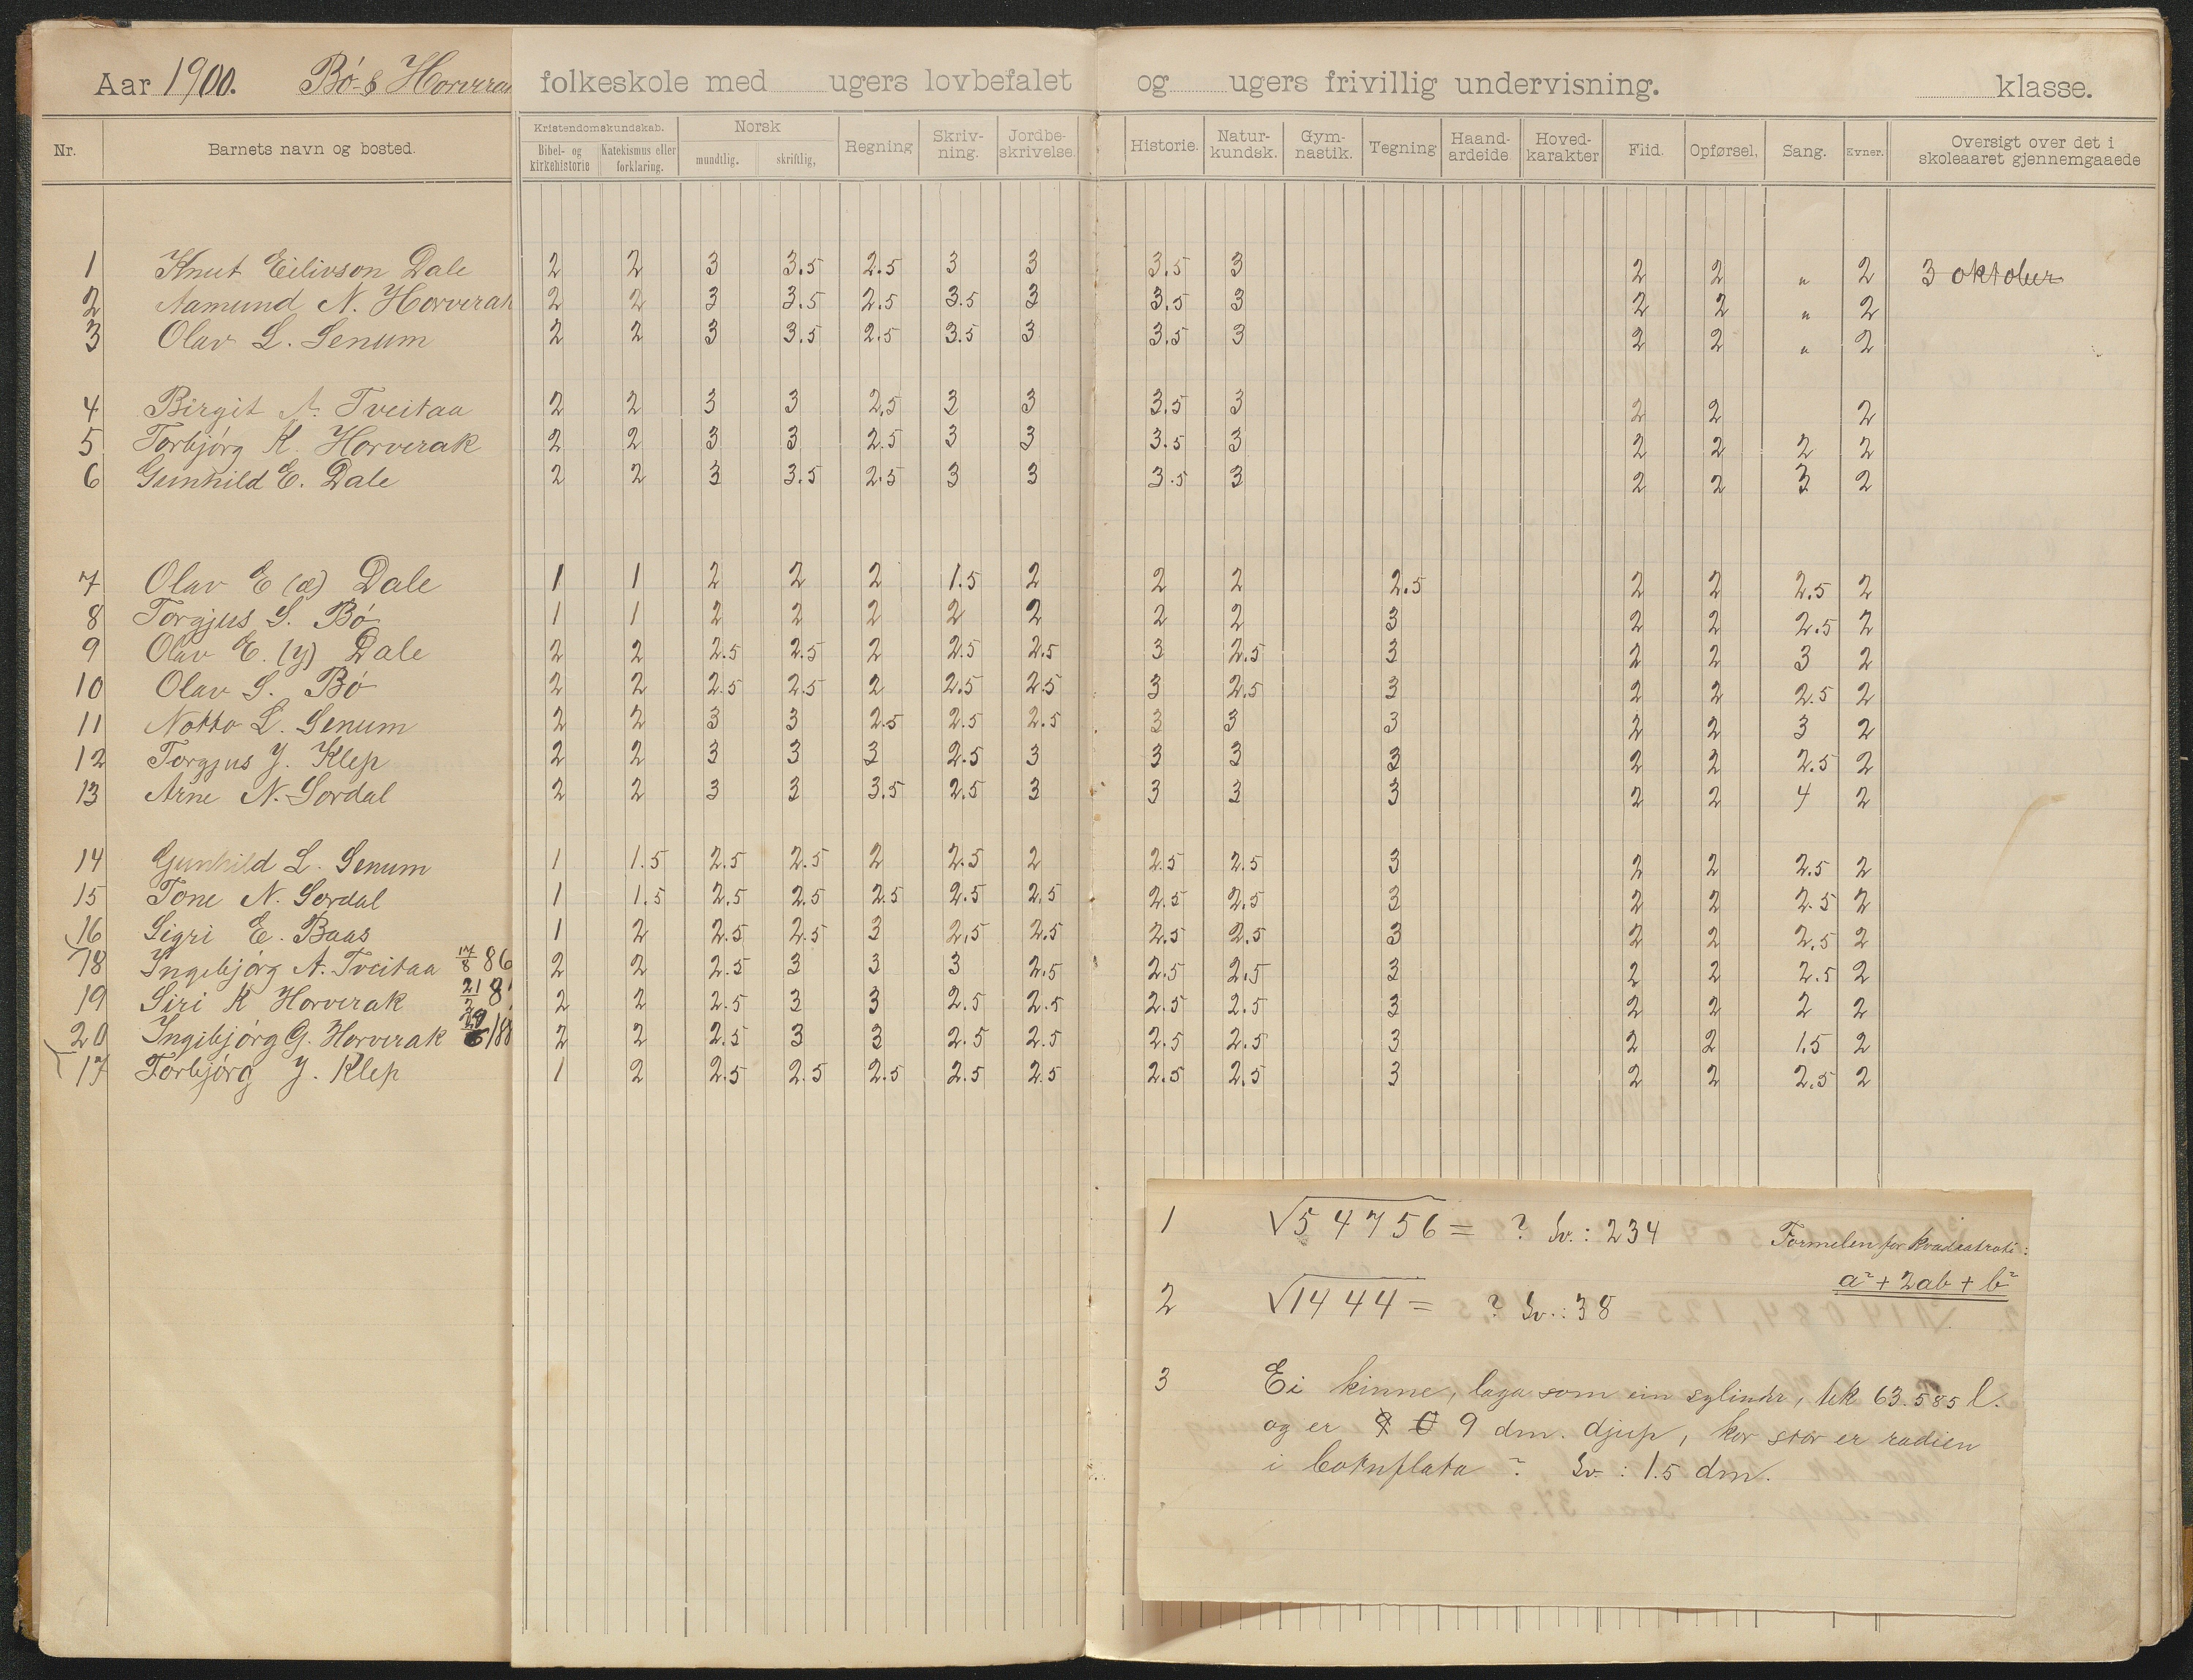 Aar 1900. Bó- & Horverak folkeskole med ugers lovbefalet og ugers frivillig undervisning. klasse.
Nr. Barnets navn og bosted. Kristendomskundskab. Bibel- og kirkehistorie Katekismus eller forklaring. Norsk mundtlig. skriftlig, Regning Skriv-ning. Jordbe-skrivelse. Historie. Natur-kundsk. Gym-nastik. Tegning Haand-arbeide. Hoved-karakter Flid. Opførsel. Sang. Evner. Oversigt over det i skoleaaret gjennemgaaede
1 Knut Eilivson Dale 2 2 3 3.5 2.5 3 3 3.5 3 2 2 " 2 3 oktober
2 Aamund N. Horverak 2 2 3 3.5 2.5 3.5 3 3.5 3 2 2 " 2
3 Olav L. Senum 2 2 3 3.5 2.5 3.5 3 3.5 3 2 2 " 2
4 Birgit A. Tveitaa 2 2 3 3 2.5 3 3 3.5 3 2 2 2
5 Torbjórg K. Horverak 2 2 3 3 2.5 3 3 3.5 3 2 2 2 2
6 Gunhild E. Dale 2 2 3 3.5 2.5 3 3 3.5 3 2 2 3 2
7 Olav E (æ) Dale 1 1 2 2 2 1.5 2 2 2 2.5 2 2 2.5 2
8 Torgjus S. Bó 1 1 2 2 2 2 2 2 2 3 2 2 2.5 2
9 Olav E. (y) Dale 2 2 2.5 2.5 2 2.5 2.5 3 2.5 3 2 2 3 2
10 Olav S. Bó 2 2 2.5 2.5 2 2.5 2.5 3 2.5 3 2 2 2.5 2
11 Notto L. Senum 2 2 3 3 2.5 2.5 2.5 3 3 3 2 2 3 2
12 Torgjus J. Klep 2 2 3 3 3 2.5 3 3 3 3 2 2 2.5 2
13 Arne N. Sordal 2 2 3 3 3.5 2.5 3 3 3 3 2 2 4 2
14 Gunhild L. Senum 1 1.5 2.5 2.5 2 2.5 2 2.5 2.5 3 2 2 2.5 2
15 Tone N. Sordal 1 1.5 2.5 2.5 2.5 2.5 2.5 2.5 2.5 3 2 2 2.5 2
16 Sigri E. Baas 1 2 2.5 2.5 3 2.5 2.5 2.5 2.5 3 2 2 2.5 2
18 Ingebjórg A. Tveitaa 17/8 86 2 2 2.5 3 3 3 2.5 2.5 2.5 3 2 2 2.5 2
19 Siri K Horverak 21/2 8 2 2 2.5 3 3 2.5 2.5 2.5 2.5 3 2 2 2 2
20 Ingibjórg G. Horverak 29/6 188 2 2 2.5 3 3 2.5 2.5 2.5 2.5 3 2 2 1.5 2
17 Torbjórg J. Klep 1 2 2.5 2.5 2.5 2.5 2.5 2.5 2.5 3 2 2 2.5 2
1 √54756 = ? Sv.: 234 Formelen for kvadratrot:
a² + 2ab + b²
2 √1444 = ? Sv.: 38
3 Ei kinne, laga som ein sylinder, tek 63.585 l.
og er 9 dm. djup, kor stor er radien
i botnflata? Sv: 1.5 dm.